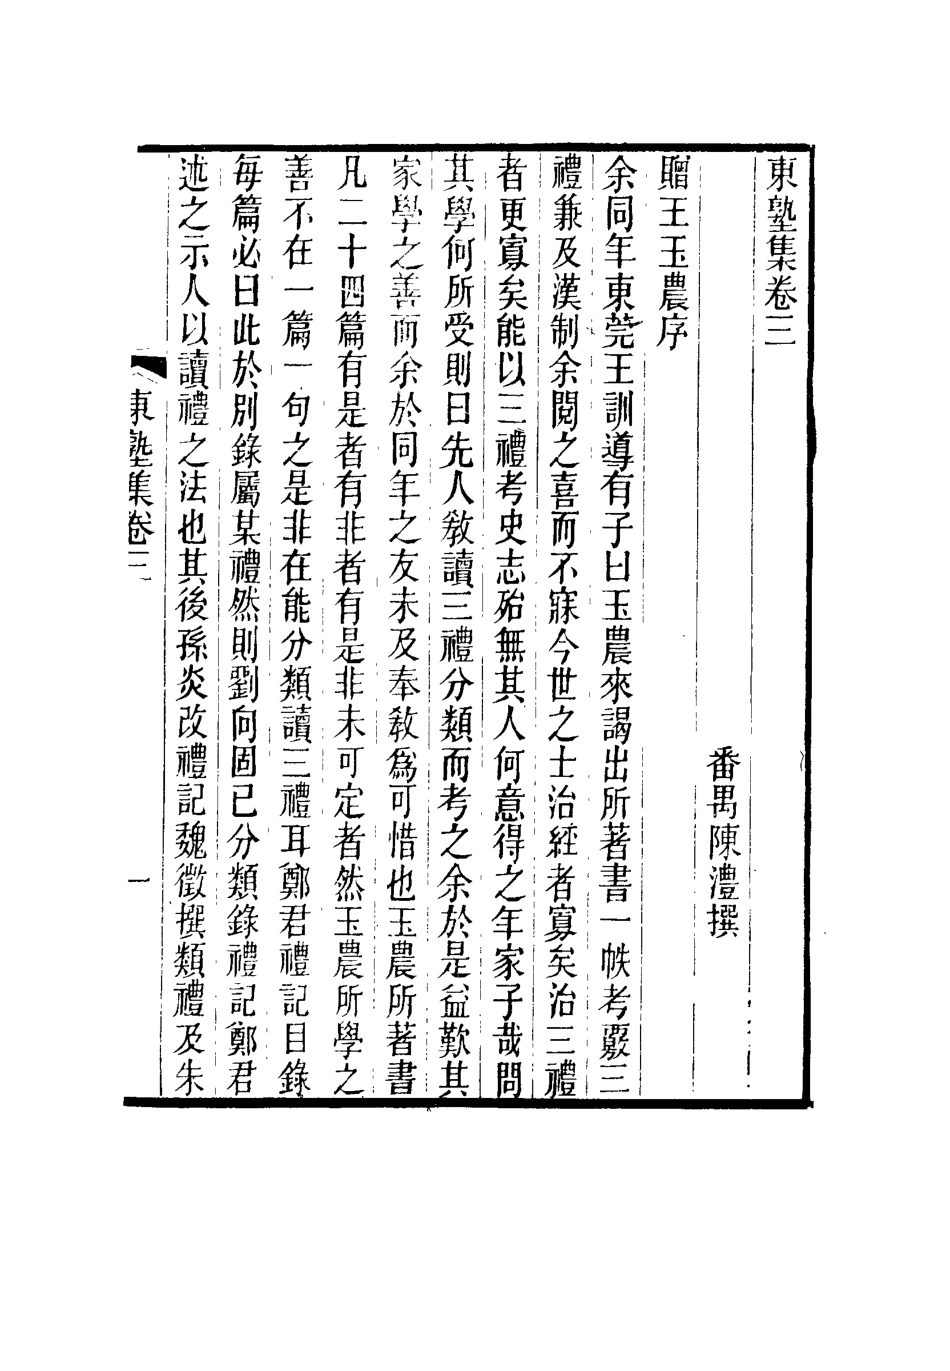 東塾集卷三
番禺陳澧撰
贈王玉農序
余同年東莞王訓導有子曰玉農來謁出所著書一帙考覈三
禮兼及漢制余閱之喜而不寐今世之士治經者寡矣治三禮
者更寡矣能以三禮考史志殆無其人何意得之年家子哉問
其學何所受則曰先人敎讀三禮分類而考之余於是益歎其
家學之善而余於同年之友未及奉敎爲可惜也玉農所著書
凡二十四篇有是者有非者有是非未可定者然玉農所學之
善不在一篇一句之是非在能分類讀三禮耳鄭君禮記目錄
每篇必曰此於別錄屬某禮然則劉向固已分類錄禮記鄭君
述之示人以讀禮之法也其後孫炎改禮記魏徵撰類禮及朱
東塾集卷三
一